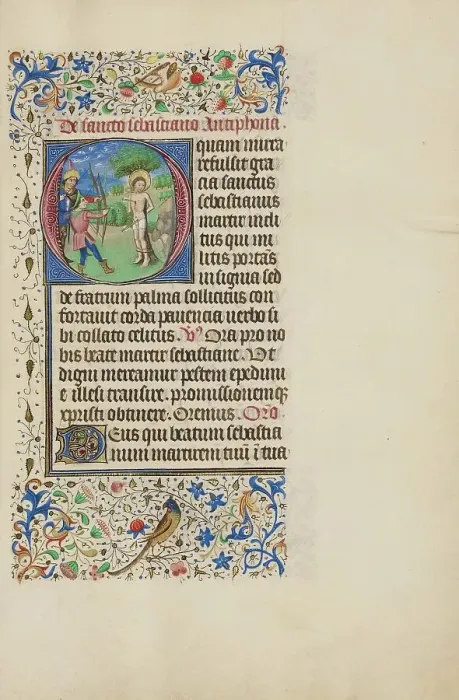 De sancto sebastiano Antiphona.
O quam mira
refulsit gra
cia sanctus
sebastianus
martir incli
tus qui mi
litis portās
insignia sed
de fratrum palma sollicitus con
fortauit corda pauencia uerbo si
bi collato celitus. V̷ Ora pro no
bis beate martir sebastiane. Vt
digni mereamur pestem epedimi
e illesi transire. promissionemqꝫ
xpristi obtinere. Oremus. Oro.
Deus qui beatum sebastia
num martirem tuū ī tua